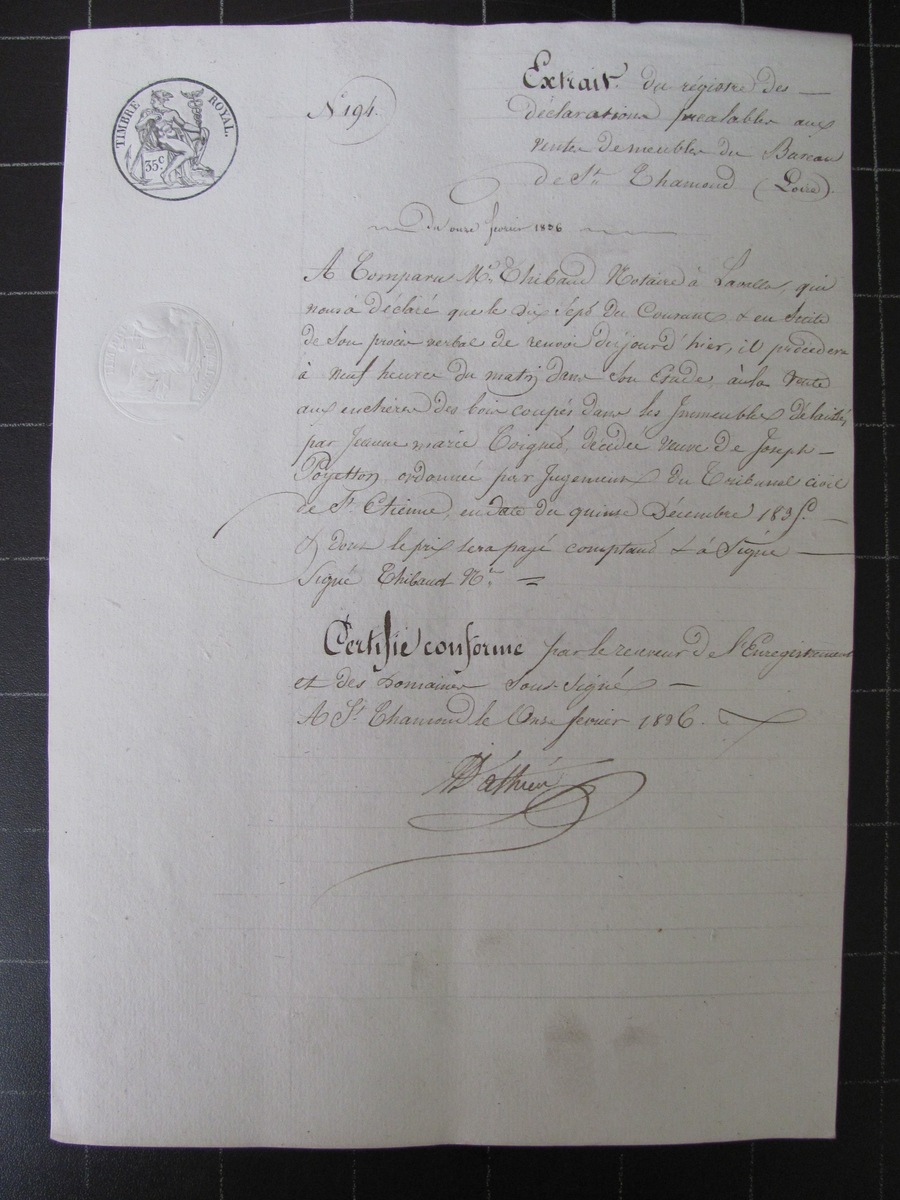 TIMBRE ROYAL.
35c
N° 194.
Extrait du régistre des
déclarations préalables aux
ventes de meubles du Bureau
de St Chamond (Loire).
Du onze fevrier 1836
A Comparu Me Thibaud Notaire à Lavalla, qui
nous à déclaré que le Dix Sept du Courant & en Suite
de Son procès verbal de renvoi du jour d'hier, il procédera
à neuf heures du matin dans Son Etude, à la Vente
aux enchères des bois coupés dans les Immeubles délaissés
par Jeanne marie décédée veuve de Joseph
Poyetton, ordonnée par Jugement du Tribunal civil
de St Etienne, en date du quinze Décembre 1835.
& dont le prix sera payé comptant & à Signé
Signé Thibaud Nre
Certifié conforme par le receveur de l'Enregistrement
et des Domaines Sous-Signé
A St Chamond le Onze fevrier 1836.